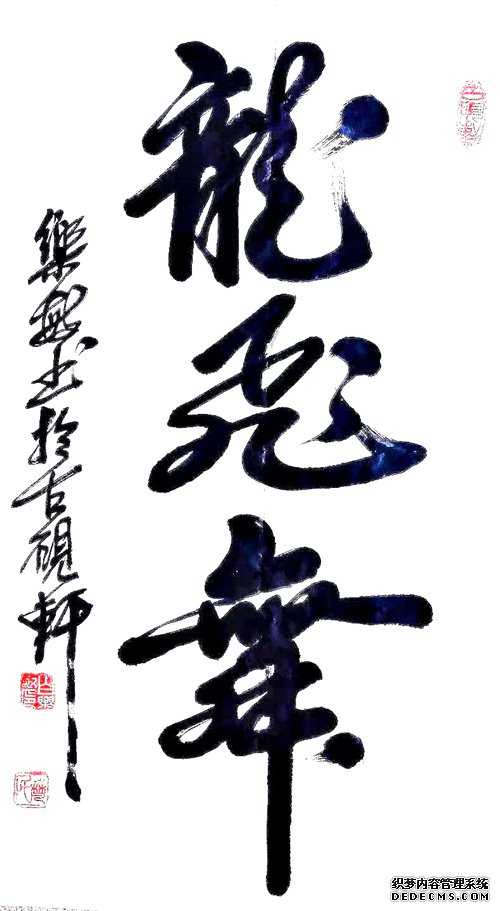 龍飛舞
樂敏書於古硯軒
织梦内容管理系统
DEDECMS.COM